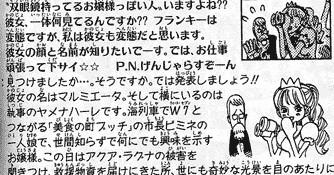 "双眼鏡持ってるお嬢様っぽい人。いますよね??
彼女一体何見てるんですか?? フランキーは
変態ですが、私は彼女も変態だと思います。
彼女の顔と名前が知りたいでーす。では、お仕事
頑張って下サイ☆☆　P.N.げんじゃらすぞーん
見つけましたか…。そうですか。では発表しましょう!!
彼女の名はマルミエータ。そして横にいるのは
執事のヤメナハーレです。海列車でW7と
つながる「美食の町プッチ」の市長ビミネの
一人娘で、世間知らずで何にでも興味を示す
お嬢様。この日はアクア・ラグナの被害を
聞きつけ、救援物資を届けにきた所、世にも奇妙な光景を目のあたりに